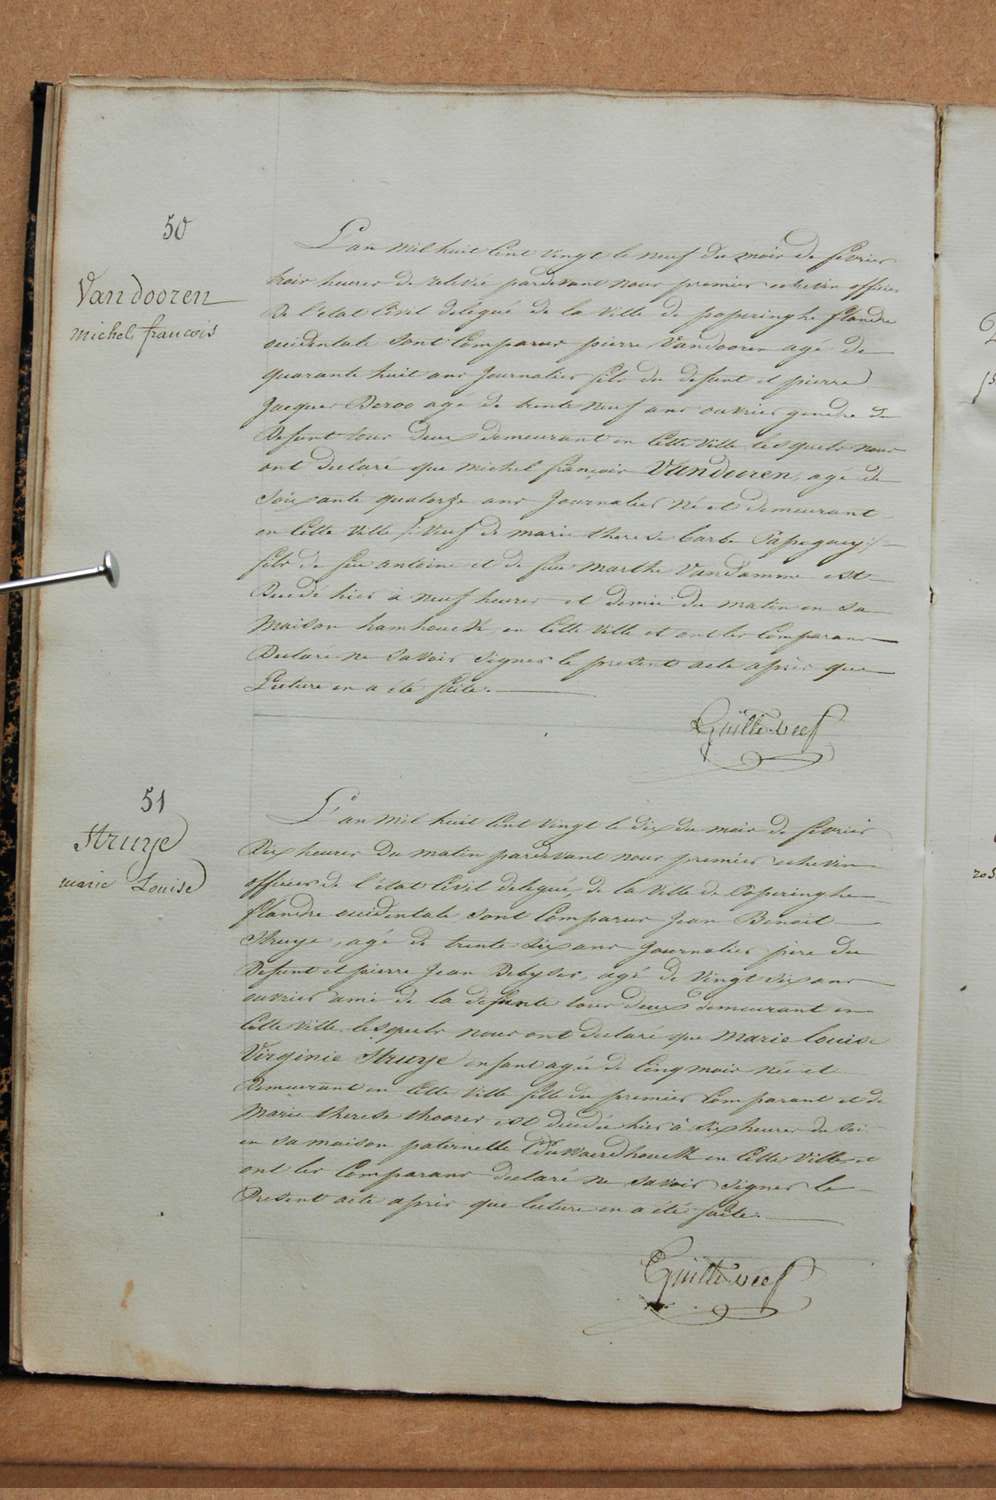 50
Vandooren
michel francois
L'an mil huit cent vingt le neuf du mois de fevrier
trois heures de relevée pardevant nous premier echevin officier
De l'état Civil delegué de la ville de poperinghe flandre
occidentale Sont Comparus pierre Vandooren agé de
quarante huit ans journalier fils du defunt et pierre
Jacques Deroo agé de trente neuf ans ouvrier gendre du
Defunt tous deux demeurant en Cette Ville lesquels nous
ont declaré que michel françois Vandooren, agé de
Soixante quatorze ans journalier né et demeurant
en Cette Ville /: Veuf de marie therese barbe :/
fils de feu antoine et de feue marthe Vandamme est
Decedé hier à neuf heures et demie du matin en sa
Maison hamhouck, en Cette Ville et ont les Comparans
Declaré ne Savoir Signer le present acte après que
Lecture en a été faite.
51
Struye
marie Louise
L'an mil huit Cent vingt le dix du mois de fevrier
Dix heures du matin pardevant nous premier echevin
officier de l'état Civil delegué de la Ville de Poperinghe
flandre occidentale Sont Comparus Jean Benoit
Struye, agé de trente Six ans journalier père du
Defunt et pierre Jean Debyser, agé de Vingt Six ans
ouvrier ami de la defunte tous deux demeurant en
Cette Ville, lesquels nous ont declaré que Marie louise
Virginie Struye enfant agée de Cinq mois née et
Demeurant en Cette Ville fille du premier Comparant et de
Marie therese thoores est decedée hier à Six heures du Soir
en Sa maison paternelle en Cette Ville et
ont les Comparans declaré ne Savoir Signer le
Present acte après que lecture en a été faite.